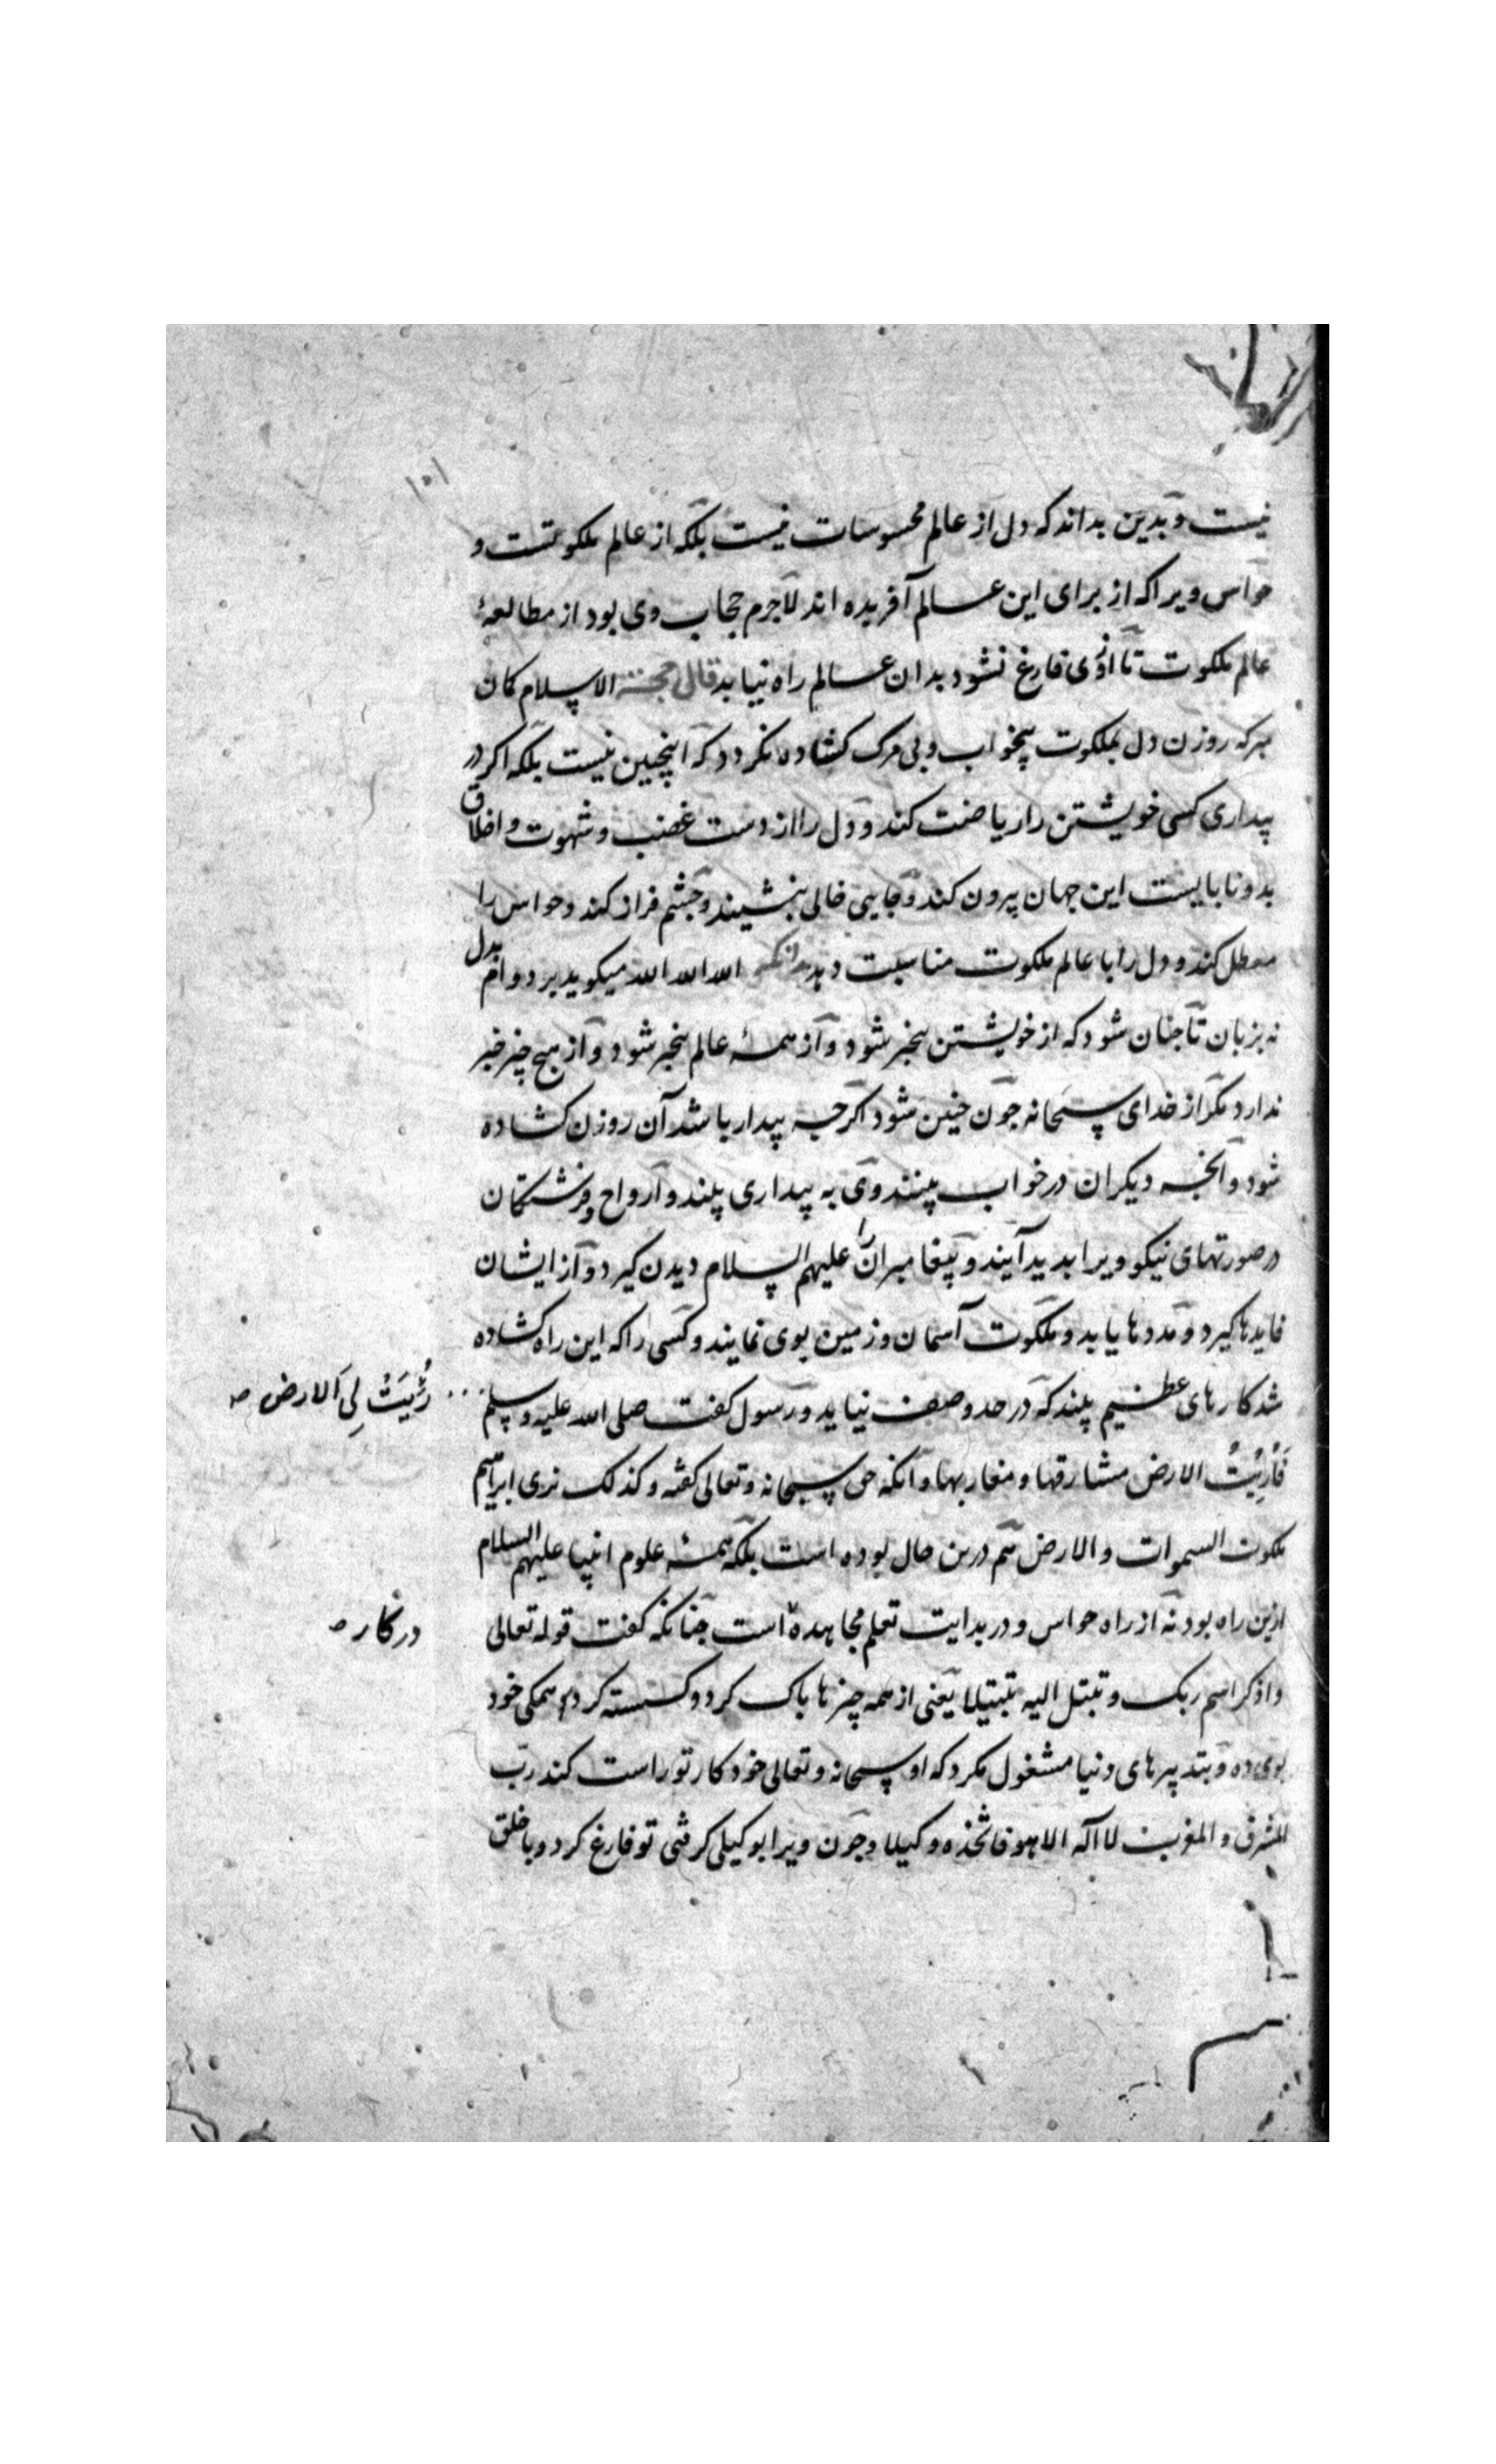 ۱۰۱
نیست و بدین بداند که دل از عالم محسوسات نیست بلکه از عالم ملکوتست و
حواس ویرا که از برای این عالم آفریده اند لاجرم حجاب وی بود از مطالعهٔ
عالم ملکوت تا ازوی فارغ نشود بدان عالم راه نیابد قال حجة الاسلام کان
مبر که روزن دل بملکوت بیخواب و بی مرک کشاده نکردد که اینچنین نیست بلکه اکر در
بیداری کسی خویشتن را ریاضت کند و دل را از دست غضب و شهوت و اخلاق
بد و نابایست این جهان بیرون کند و جایی خالی بنشیند و چشم فراز کند و حواس را
معطل کند و دل را با عالم ملکوت مناسبت دهد الله الله الله میکوید بر دوام بدل
نه بزبان تا جنان شود که از خویشتن بیخبر شود و از همهٔ عالم بیخبر شود و از هیج چیز خبر
ندارد مکر از خدای سبحانه جون جنین شود اکرجه بیدار باشد آن روزن کشاده
شود و آنجه دیکران در خواب بینند وی به بیداری بیند و ارواح و فرشتکان
در صورتهای نیکو ویرا بدید آیند و پیغامبران را علیهم السلام دیدن کیرد و از ایشان
فایدها کیرد و مددها یابد و ملکوت آسمان و زمین بوی نمایند و کسی را که این راه کشاده
شد کارهای عظیم بیند که در حد وصف نیاید و رسول کفت صلی الله علیه و سلم
رُئِیَتْ لِیَ الارض صـ
فَأُرِیْتُ الارض مشارقها و مغاربها و آنکه حق سبحانه و تعالی کفته و کذلک نری ابراهیم
ملکوت السموات والارض هم درین حال بوده است بلکه همهٔ علوم انبیا علیهم السلام
ازین راه بود نه از راه حواس و در بدایت تعلم مجاهده است جنانکه کفت قوله تعالی
درکار صـ
واذکر اسم ربک و تبتل الیه تبتیلا یعنی از همه چیزها باک کرد و کسسته کرد و همکی خود
بوی ده و بتدبیرهای دنیا مشغول مکرد که او سبحانه و تعالی خود کار تو راست کند رب
المشرق و المغرب لا اله الا هو فاتخذه وکیلا و جون ویرا بوکیلی کرفتی تو فارغ کرد و با خلق